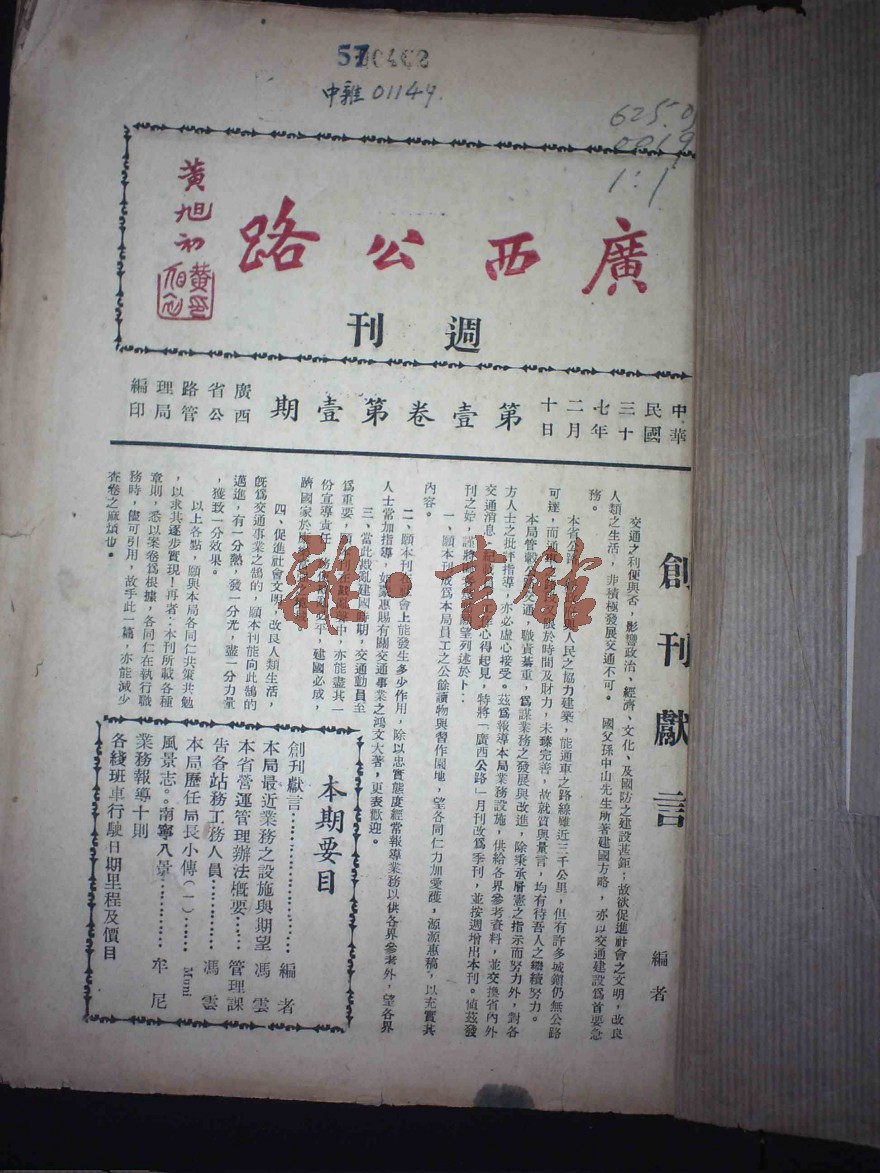 570402
中雜 01149.
625.0
1:1
廣西公路
週刊
黃旭初
中華民國三十七年二月十日
第壹卷第壹期
廣西省公路管理局編印
創刊獻言
編者
交通之利便與否，影響政治、經濟、文化、及國防之建設甚鉅；故欲促進社會之文明，改良
人類之生活，非積極發展交通不可。　國父孫中山先生所著建國方略，亦以交通建設爲首要急
務。
本省公路，人民之協力建築，能通車之路線雖近三千公里，但有許多城鎮仍無公路
可達，而限於時間及財力，未臻完善，故就質與量言，均有待吾人之繼續努力。
本局管轄交通，職責綦重，爲謀業務之發展與改進，除秉承層憲之指示而努力外，對各
方人士之批評指導，亦必虛心接受。茲爲報導本局業務設施，供給各界參考資料，並交換省內外
交通消息，心得起見，特將「廣西公路」月刊改爲季刊，並按週增出本刊。値茲發
刊之始，謹將願望列述於卜：
一、願本刊成爲本局員工之公餘讀物與習作園地，望各同仁力加愛護，源源惠稿，以充實其
內容。
二、願本刊在社會上能發生多少作用，除以忠實態度經常報導業務以供各界參考外，望各界
人士常加指導，如蒙惠賜有關交通事業之鴻文大著，更表歡迎。
三、當此戡亂建國時期，交通動員至
爲重要，中，亦能盡其一
份宣導責任，平，建國必成，
躋國家於
四、促進社會文明，改良人類生活，
旣爲交通事業之鵠的，願本刊能向此鵠的
邁進，有一分熱，發一分光，盡一分力量
，獲致一分效果。
以上各點，願與本局各同仁共策共勉
，以求其逐步實現！再者：本刊所載各種
章則，悉以案卷爲根據，各同仁在執行職
務時，儘可引用，故手此一篇，亦能減少
查卷之麻煩也。
本期要目
創刊獻言…………………編者
本局最近業務之設施與期望　馮雲
本省營運管理辦法概要……管理課
告各站務工務人員…………馮雲
本局歷任局長小傳（一）……Muni
風景志。。南寧八景…………牟尼
業務報導十則
各綫班車行駛日期里程及價目
雜·書館